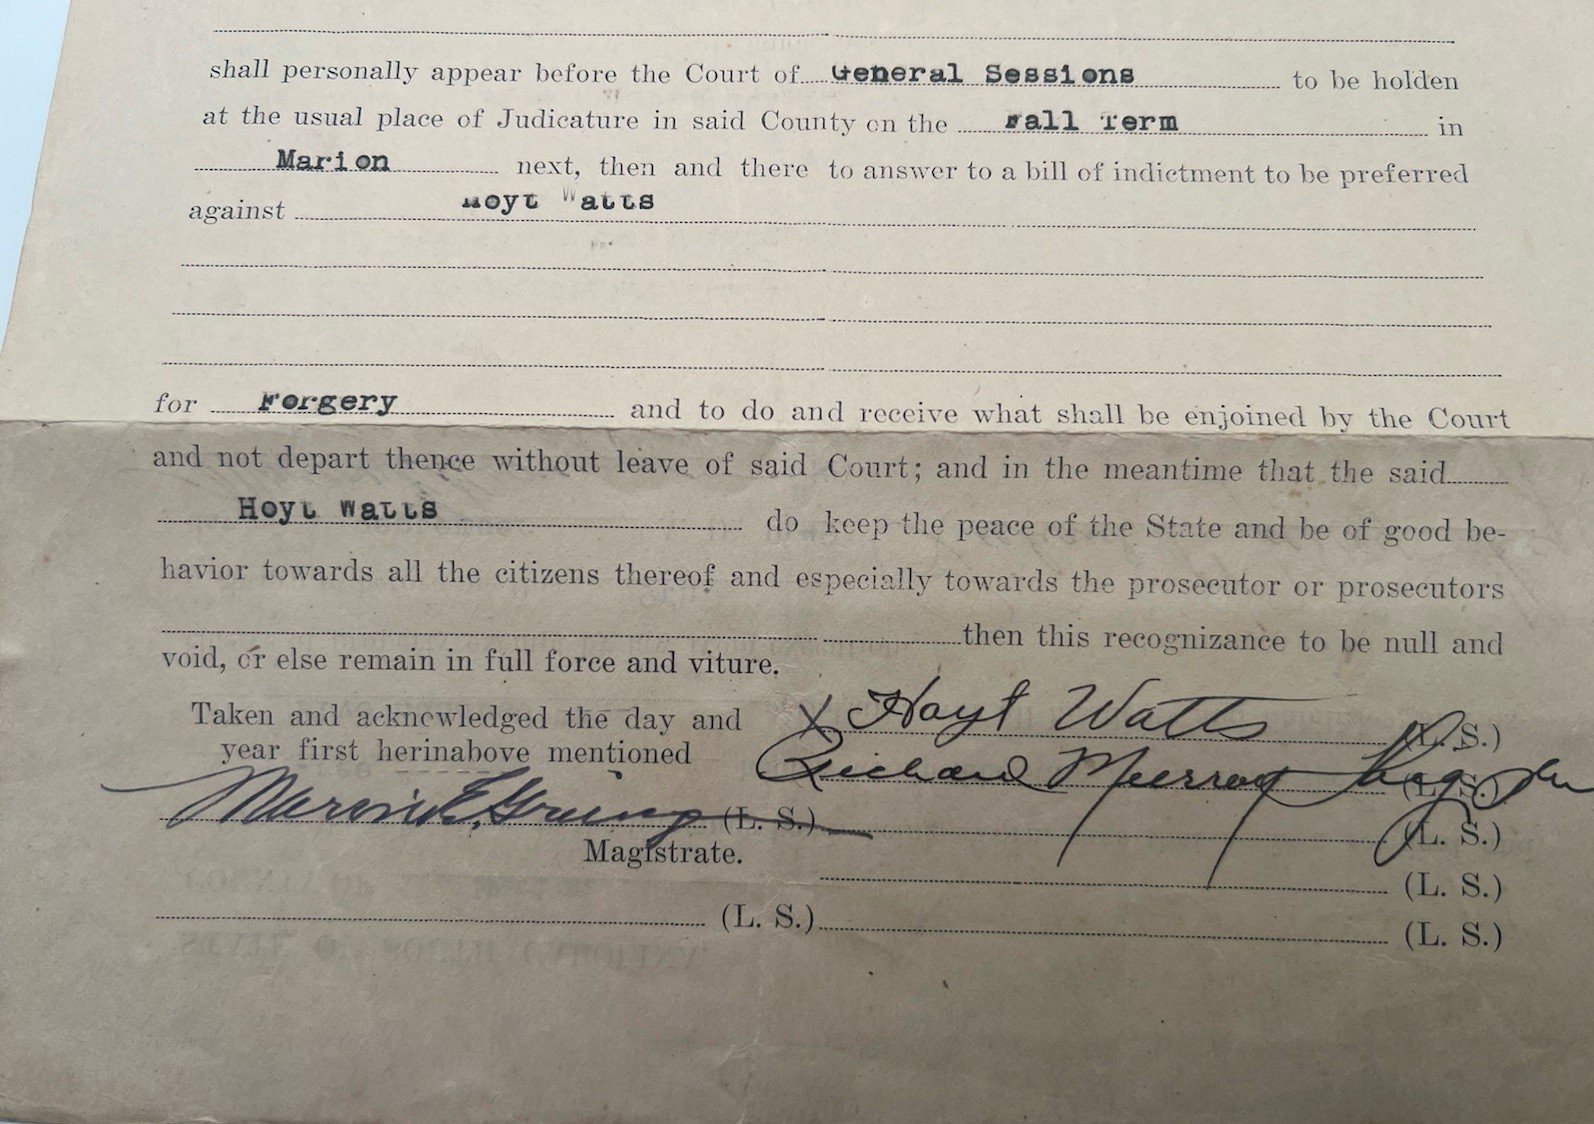 shall personally appear before the Court of General Sessions to be holden
at the usual place of Judicature in said County on the Fall Term in
Marion next, then and there to answer to a bill of indictment to be preferred
against Hoyt Watts
for Forgery and to do and receive what shall be enjoined by the Court
and not depart thence without leave of said Court; and in the meantime that the said
Hoyt Watts do keep the peace of the State and be of good be-
havior towards all the citizens thereof and especially towards the prosecutor or prosecutors
then this recognizance to be null and
void, or else remain in full force and viture.
Taken and acknowledged the day and
year first herinabove mentioned
X Hoyt Watts (L. S.)
Richard Murray (L. S.)
Marvin E. (L. S.) (L. S.)
Magistrate.
(L. S.)
(L. S.) (L. S.)